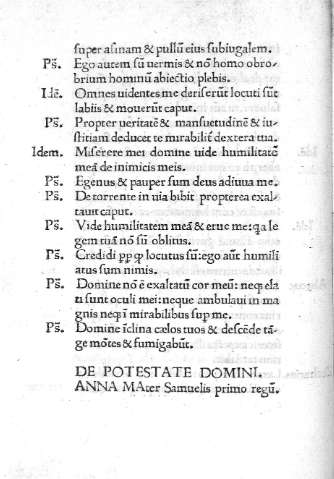 super asinam & pullū eius subiugalem.
Ps̄. Ego autem sū uermis & nō homo obro-
brium hominū abiectio plebis.
Idē. Omnes uidentes me deriserūt locuti sūt
labiis & mouerūt caput.
Ps̄. Propter ueritatē & mansuetudinē & iu-
stitiam deducet te mirabilit̄ dextera tua.
Idem. Miserere mei domine uide humilitatē
meā de inimicis meis.
Ps̄. Egenus & pauper sum deus adiuua me.
Ps̄. De torrente in uia bibit propterea exal-
tauit caput.
Ps̄. Vide humilitatem meā & erue me: q̄a le
gem tuā nō sū oblitus.
Ps̄. Credidi ꝓp ꝙ locutus sū: ego aūt humili
atus sum nimis.
Ps̄. Domine nō ē exaltatū cor meū: neq; ela
ti sunt oculi mei: neque ambulaui in ma
gnis neq; ī mirabilibus sup me.
Ps̄. Domine īclina cælos tuos & descēde tā-
ge mōtes & fumigabūt.
DE POTESTATE DOMINI.
ANNA MAter Samuelis primo regū.